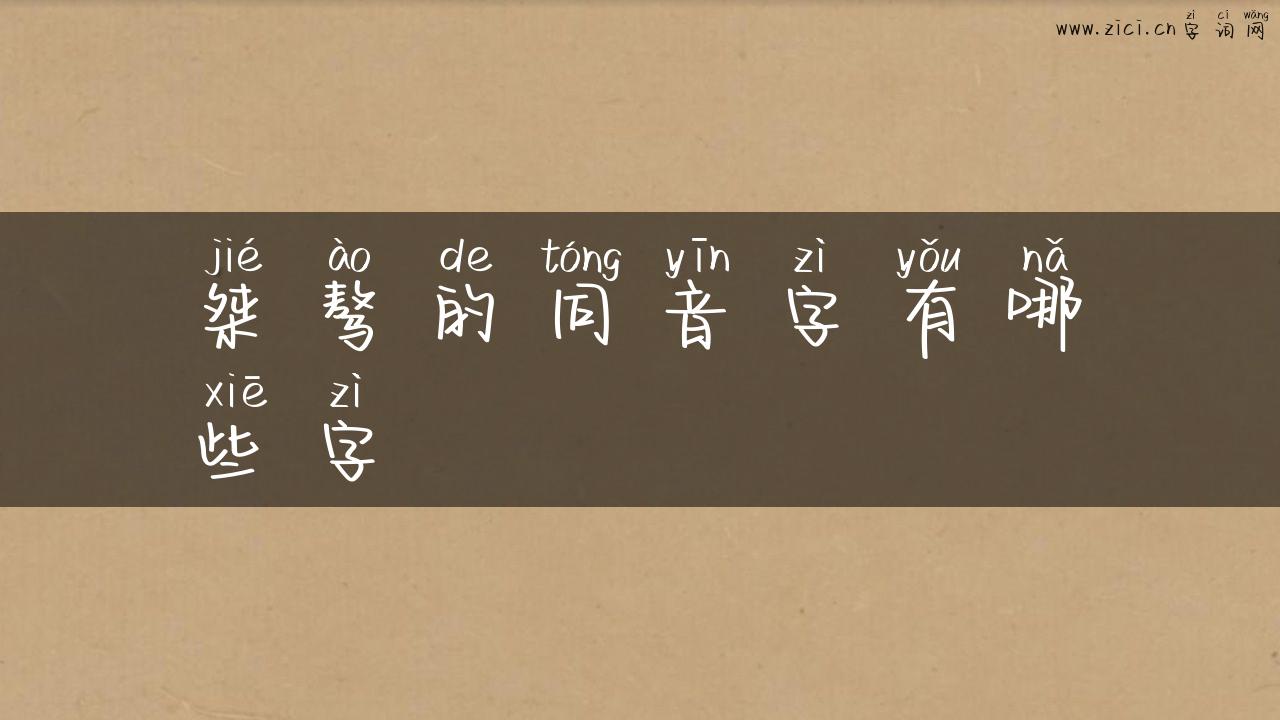 zì cí wǎng
www.zici.cn 字词网
jié ào de tóng yīn zì yǒu nǎ
桀骜的同音字有哪
xiē zì
些字